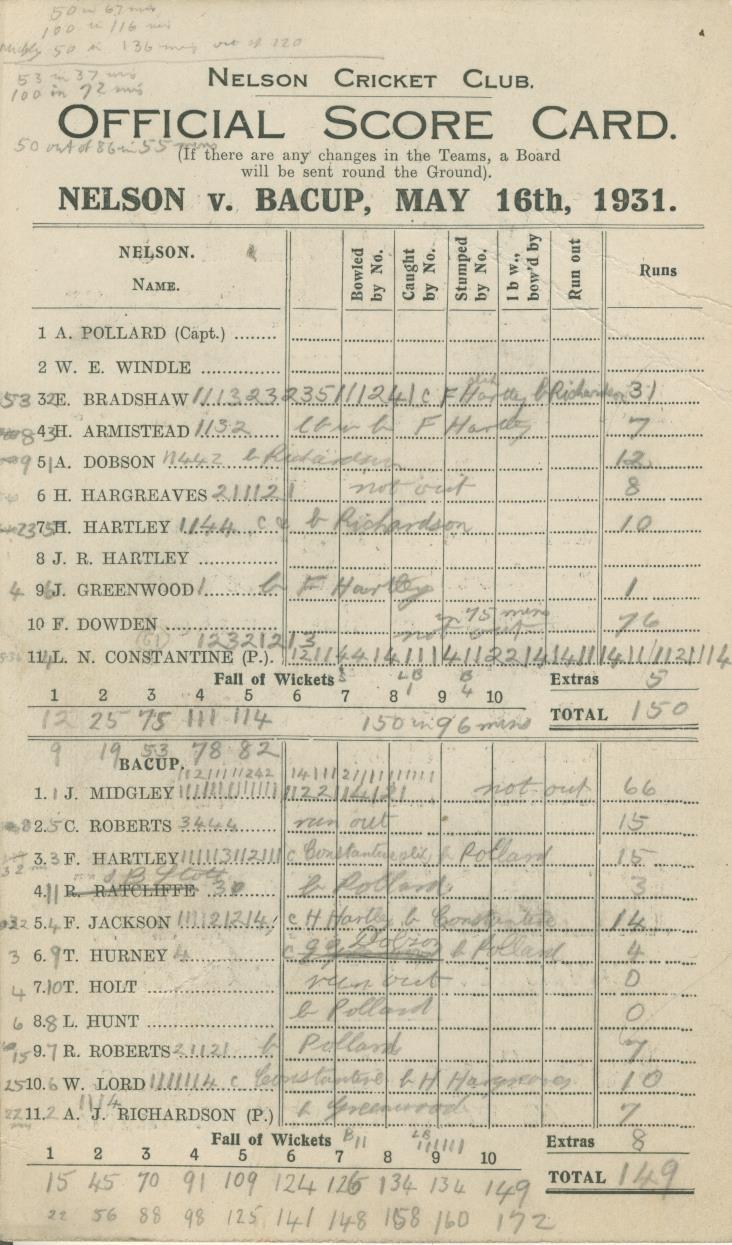 50 in 67 mins
100 in 116 mins
50 in 136 mins out of 120
53 in 37 mins
100 in 72 mins
NELSON CRICKET CLUB.
OFFICIAL SCORE CARD.
50 out of 86 in 55 mins
(If there are any changes in the Teams, a Board
will be sent round the Ground).
NELSON v. BACUP, MAY 16th, 1931.
NELSON.
NAME.
Bowled by No.
Caught by No.
Stumped by No.
l b w., bow'd by
Run out
Runs
1 A. POLLARD (Capt.)
2 W. E. WINDLE
53 3 E. BRADSHAW 1111323235111241 c F Hartley b Richardson 31
4 H. ARMISTEAD 1132 lbw b F Hartley 7
5 A. DOBSON 11442 b Richardson 12
6 H. HARGREAVES 211121 not out 8
7 H. HARTLEY 1144 c & b Richardson 10
8 J. R. HARTLEY
4 9 J. GREENWOOD 1 b F Hartley 1
75 mins
10 F. DOWDEN not out 76
12321213
11 L. N. CONSTANTINE (P.)
Fall of Wickets Extras 5
1 2 3 4 5 6 7 8 9 10
12 25 75 111 114 150 in 96 mins TOTAL 150
9 19 53 78 82
BACUP.
1. J. MIDGLEY not out 66
2. C. ROBERTS 3444 run out 15
3. F. HARTLEY c Constantine b Pollard 15
4. R. RATCLIFFE 30 b Pollard 3
5. F. JACKSON 11121214 c H Hartley b Constantine 14
6. T. HURNEY 4 c Dobson b Pollard 4
4 7. 10 T. HOLT run out 0
6 8. 8 L. HUNT b Pollard 0
15 9. 7 R. ROBERTS 21121 b Pollard 7
25 10. 6 W. LORD 1111114 c Constantine b H Hargreaves 10
1114
11. 2 A. J. RICHARDSON (P.) b Greenwood 7
Fall of Wickets B 11 LB 111111 Extras 8
1 2 3 4 5 6 7 8 9 10
15 45 70 91 109 124 126 134 134 149 TOTAL 149
22 56 88 98 125 141 148 158 160 172